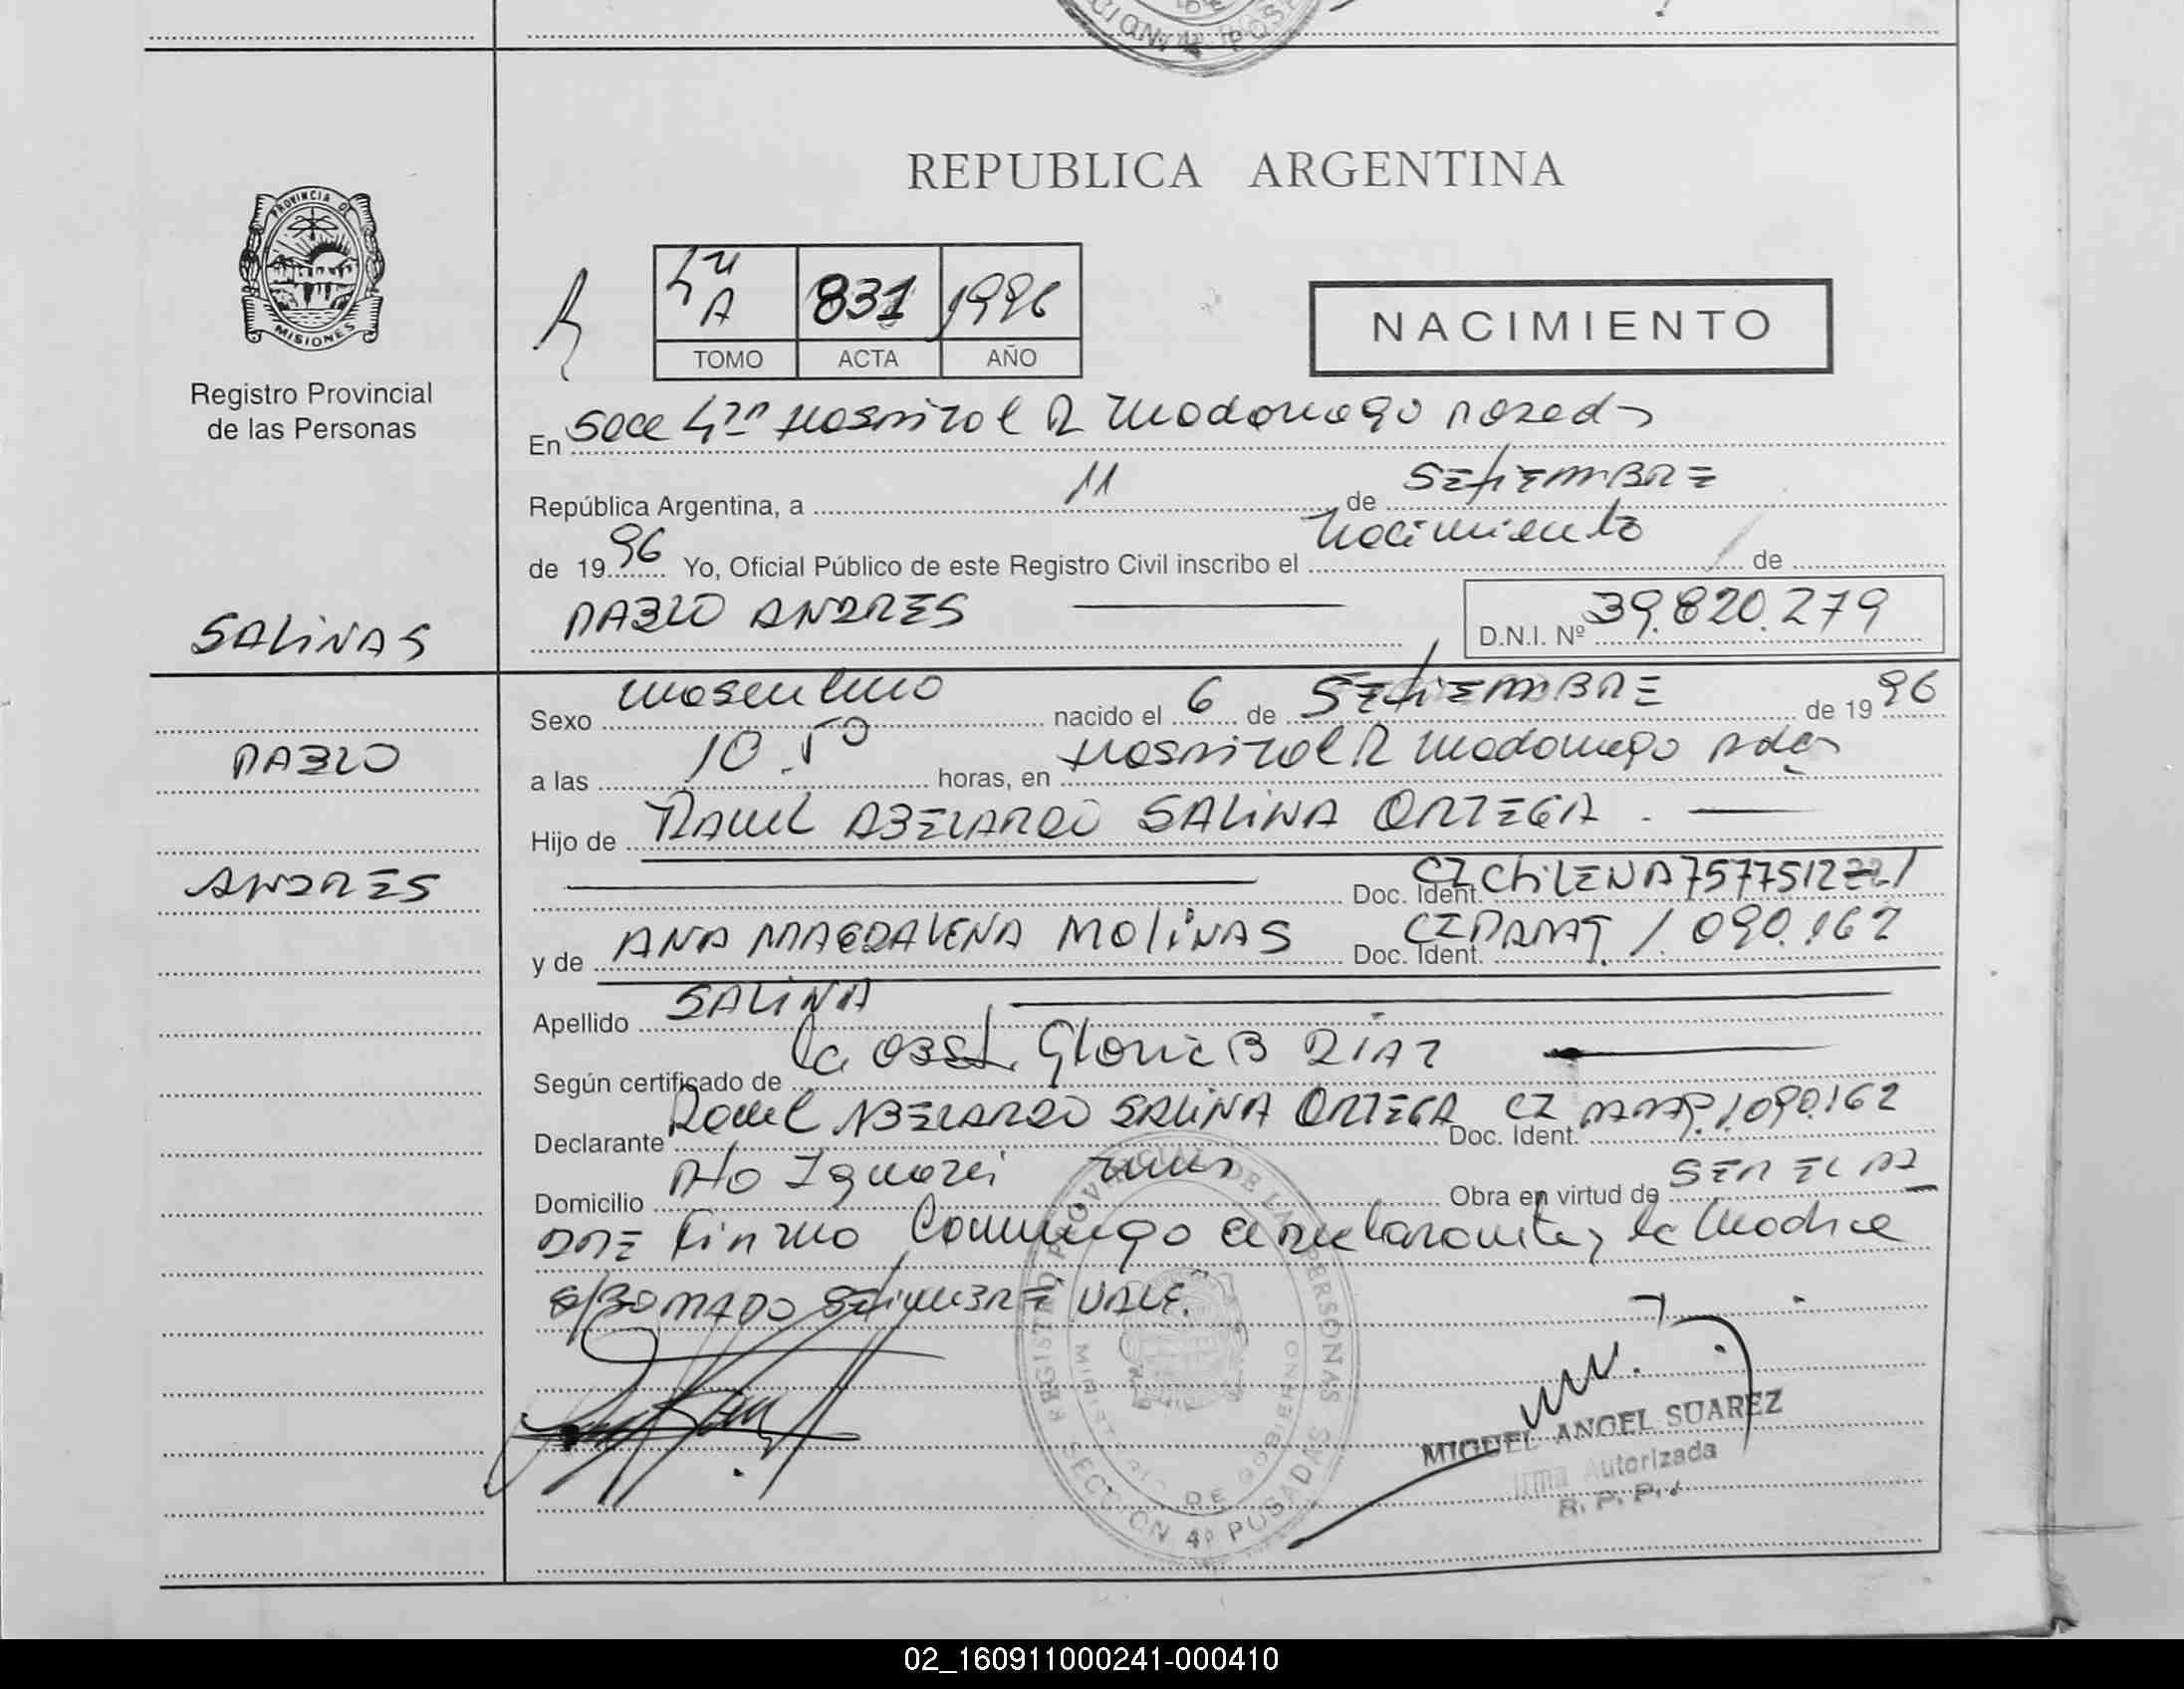 REPUBLICA ARGENTINA
PROVINCIA DE
MISIONES
Registro Provincial
de las Personas
4ta A 831 1996
TOMO ACTA AÑO
NACIMIENTO
En Secc 4ta Hospital R Madariaga Posadas
República Argentina, a 11 de SETIEMBRE
de 1996 Yo, Oficial Público de este Registro Civil inscribo el Nacimiento de
PABLO ANDRES
D.N.I. Nº 39.820.279
SALINAS
PABLO
ANDRES
Sexo masculino nacido el 6 de SETIEMBRE de 1996
a las 10.50 horas, en Hospital R Madariaga Pdas
Hijo de RAUL ABELARDO SALINA ORTEGA
Doc. Ident. CI CHILENA
y de ANA MAGDALENA MOLINAS Doc. Ident. CI PARAG 1.090.162
Apellido SALINA
Según certificado de la OBST. Gloria B DIAZ
Declarante Raul ABELARDO SALINA ORTEGA Doc. Ident. CI PARAG. 1.090.162
Domicilio Pto Iguazú Mnes Obra en virtud de SER EL PA
DRE Firmo Conmigo el declarante y la Madre
S/BORRADO SETIEMBRE VALE.
REGISTRO PROVINCIAL DE LAS PERSONAS
MINISTERIO DE GOBIERNO
SECCION 4º POSADAS
MIGUEL ANGEL SUAREZ
Firma Autorizada
R. P. P.
02_160911000241-000410